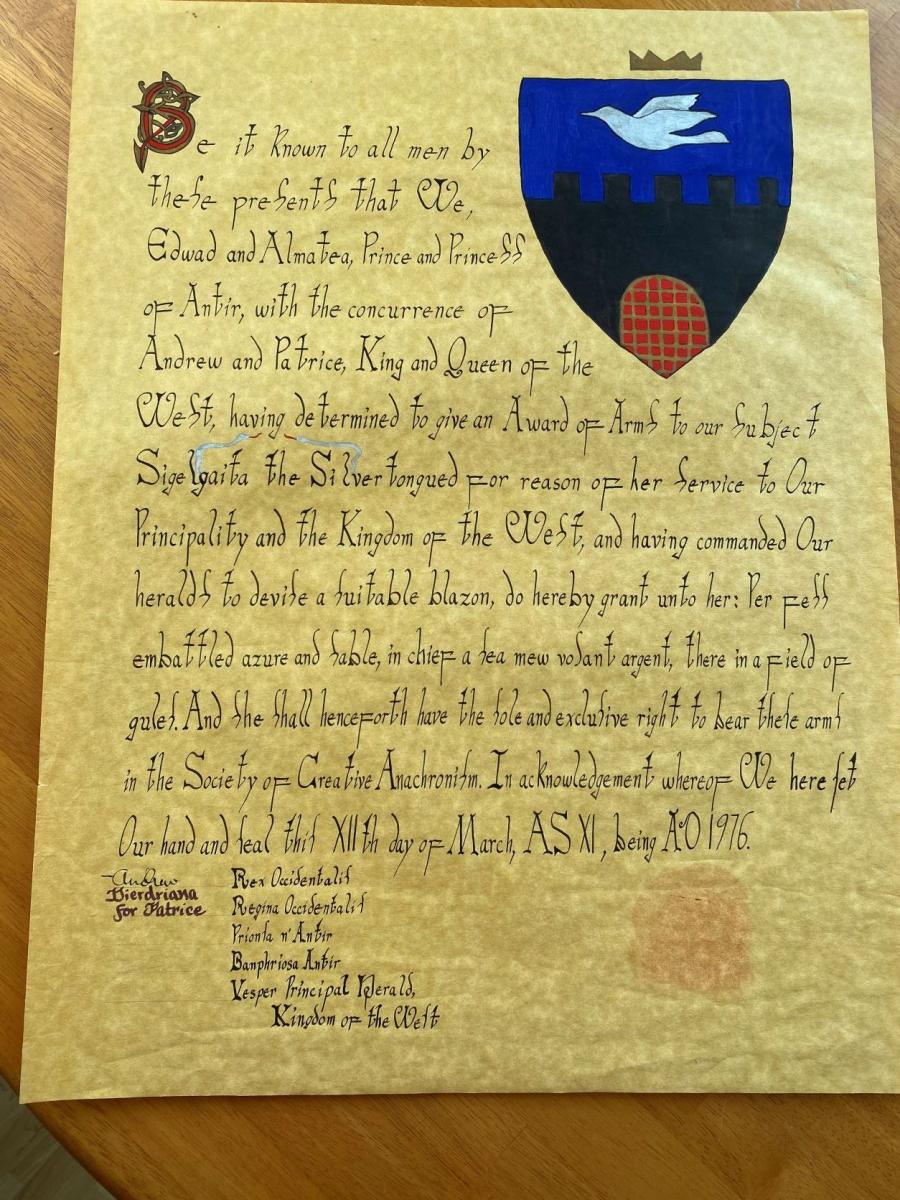 Be it known to all men by
these presents that We,
Edwad and Almatea, Prince and Princess
of Antir, with the concurrence of
Andrew and Patrice, King and Queen of the
West, having determined to give an Award of Arms to our subject
Sigelgaita the Silvertongued for reason of her service to Our
Principality and the Kingdom of the West, and having commanded Our
heralds to devise a suitable blazon, do hereby grant unto her: Per fess
embattled azure and sable, in chief a sea mew volant argent, there in a field of
gules. And she shall henceforth have the sole and exclusive right to bear these arms
in the Society of Creative Anachronism. In acknowledgement whereof We here set
Our hand and seal this XIIth day of March, AS XI, being AO 1976.
Andrew Rex Occidentalis
Dierdriana Regina Occidentalis
for Patrice
Prionsa n' Antir
Banphriosa Antir
Vesper Principal Herald,
Kingdom of the West